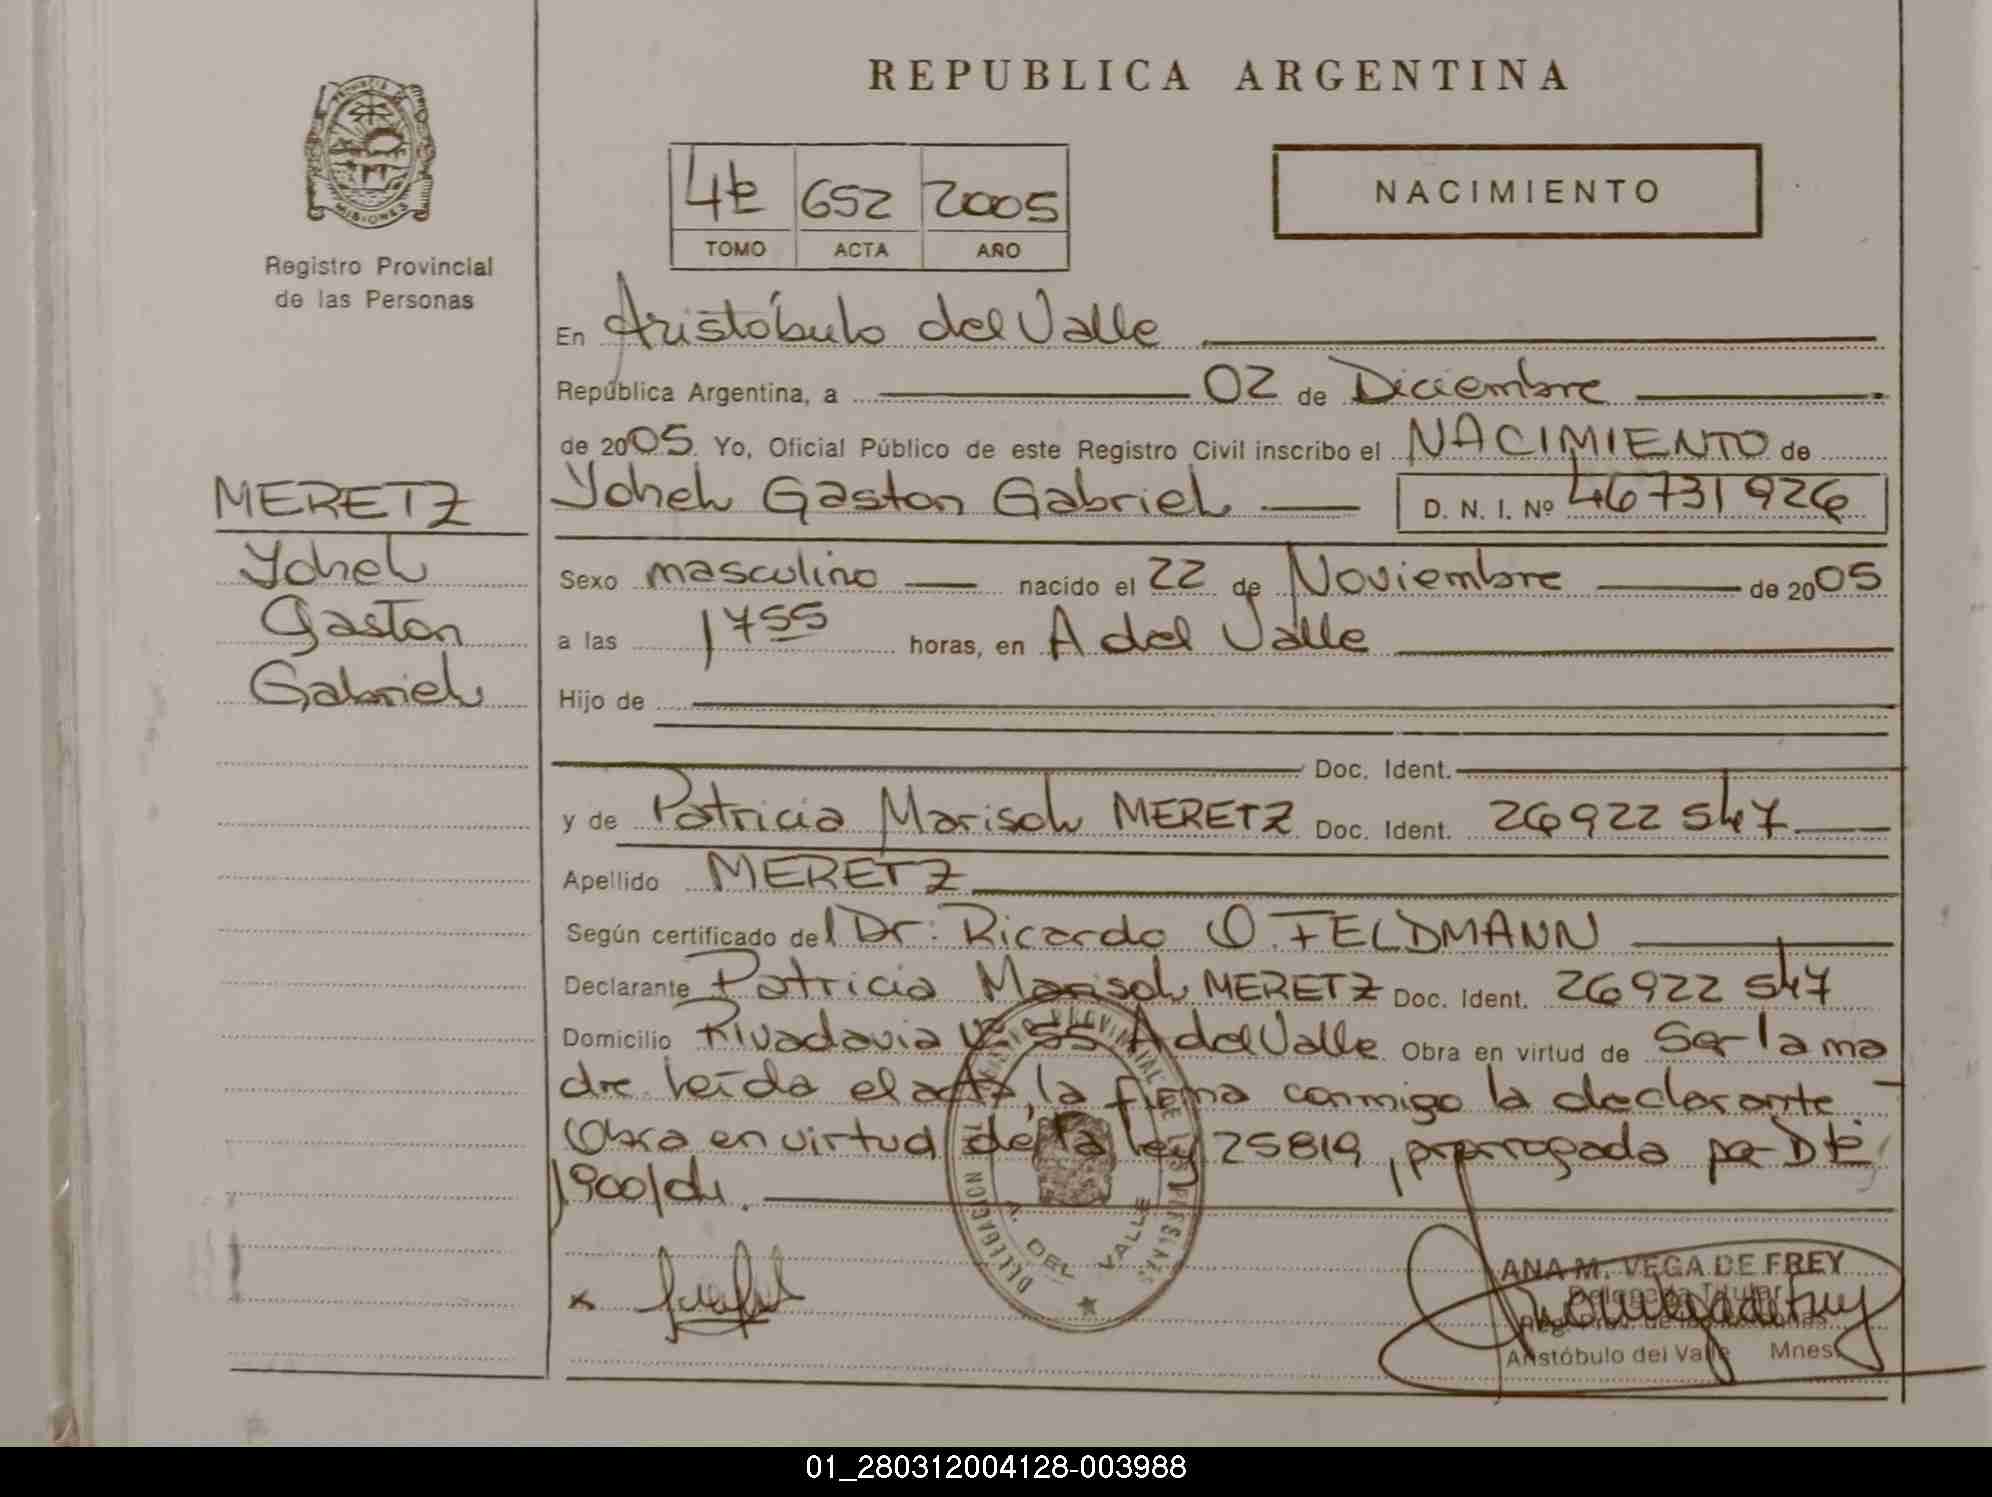 REPUBLICA ARGENTINA
MISIONES
Registro Provincial
de las Personas
4t 652 2005
TOMO ACTA AÑO
NACIMIENTO
En Aristóbulo del Valle
República Argentina, a 02 de Diciembre
de 2005 Yo, Oficial Público de este Registro Civil inscribo el NACIMIENTO de
Yohel Gaston Gabriel D. N. I. Nº 46731926
MERETZ
Yohel
Gaston
Gabriel
Sexo masculino nacido el 22 de Noviembre de 2005
a las 1755 horas, en A del Valle
Hijo de
Doc. Ident.
y de Patricia Marisol MERETZ Doc. Ident. 26922547
Apellido MERETZ
Según certificado del Dr. Ricardo O. FELDMANN
Declarante Patricia Marisol MERETZ Doc. Ident. 26922547
Domicilio Rivadavia Nº 55 A del Valle Obra en virtud de Ser la ma
dre leída el acta, la firma conmigo la declarante
Obra en virtud de la ley 25819, prorrogada por
DELEGACION
A. DEL VALLE
ANA M. VEGA DE FREY
Delegada Titular
Reg. Prov. de las Personas
Aristóbulo del Valle Mnes
01_280312004128-003988